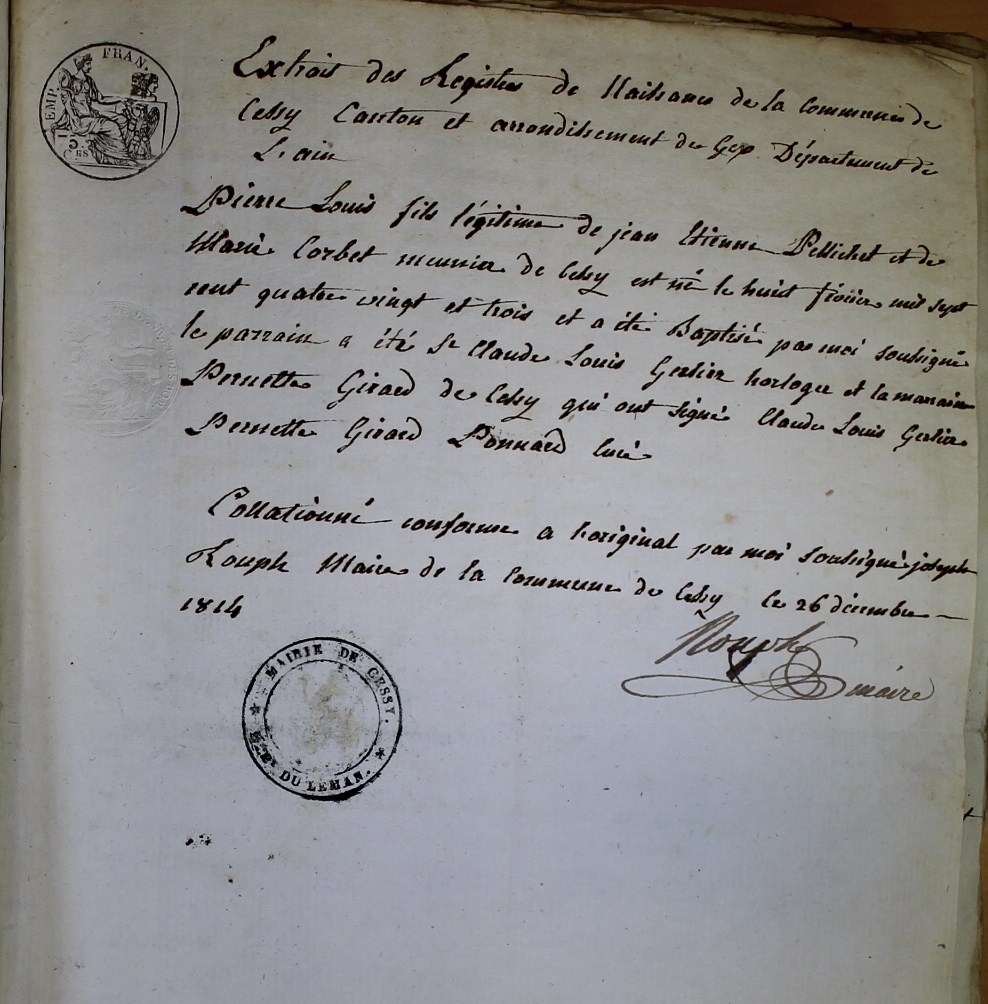 EMP. FRAN.
5. Ces
Extrait des Registres de Naissance de la Commune de
Cessy Canton et arrondissement de Gex Département de
L'ain
Pierre Louis fils légitime de jean Etienne Pellichet et de
Marie Corbet meunier de Cessy est né le huit février mil sept
cent quatre vingt et trois et a été Baptisé par moi soussigné
le parrain a été Sr Claude Louis Gerlier horloger et la maraine
Pernette Girard de Cessy qui ont signé Claude Louis Gerlier
Pernette Girard Ponnard Curé
Collationné conforme a l'original par moi soussigné joseph
Rouph Maire de la Commune de Cessy le 26 décembre
1814
Rouph
maire
MAIRIE DE CESSY.
DU LEMAN.